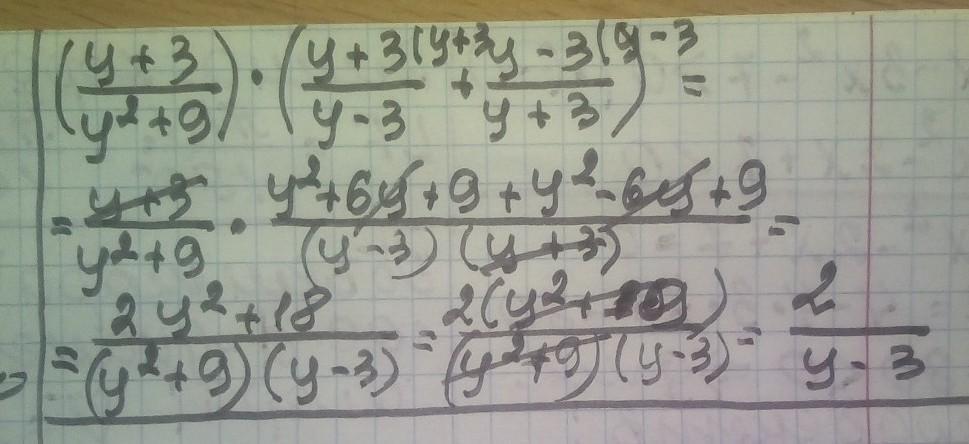 (y + 3 / y² + 9) · (y + 3 (y+3 / y - 3 + y - 3 (y - 3 / y + 3) =
= y + 3 / y² + 9 · y² + 6y + 9 + y² - 6y + 9 / (y - 3) (y + 3) =
= 2y² + 18 / (y² + 9) (y - 3) = 2(y² + 9) / (y² + 9) (y - 3) = 2 / y - 3